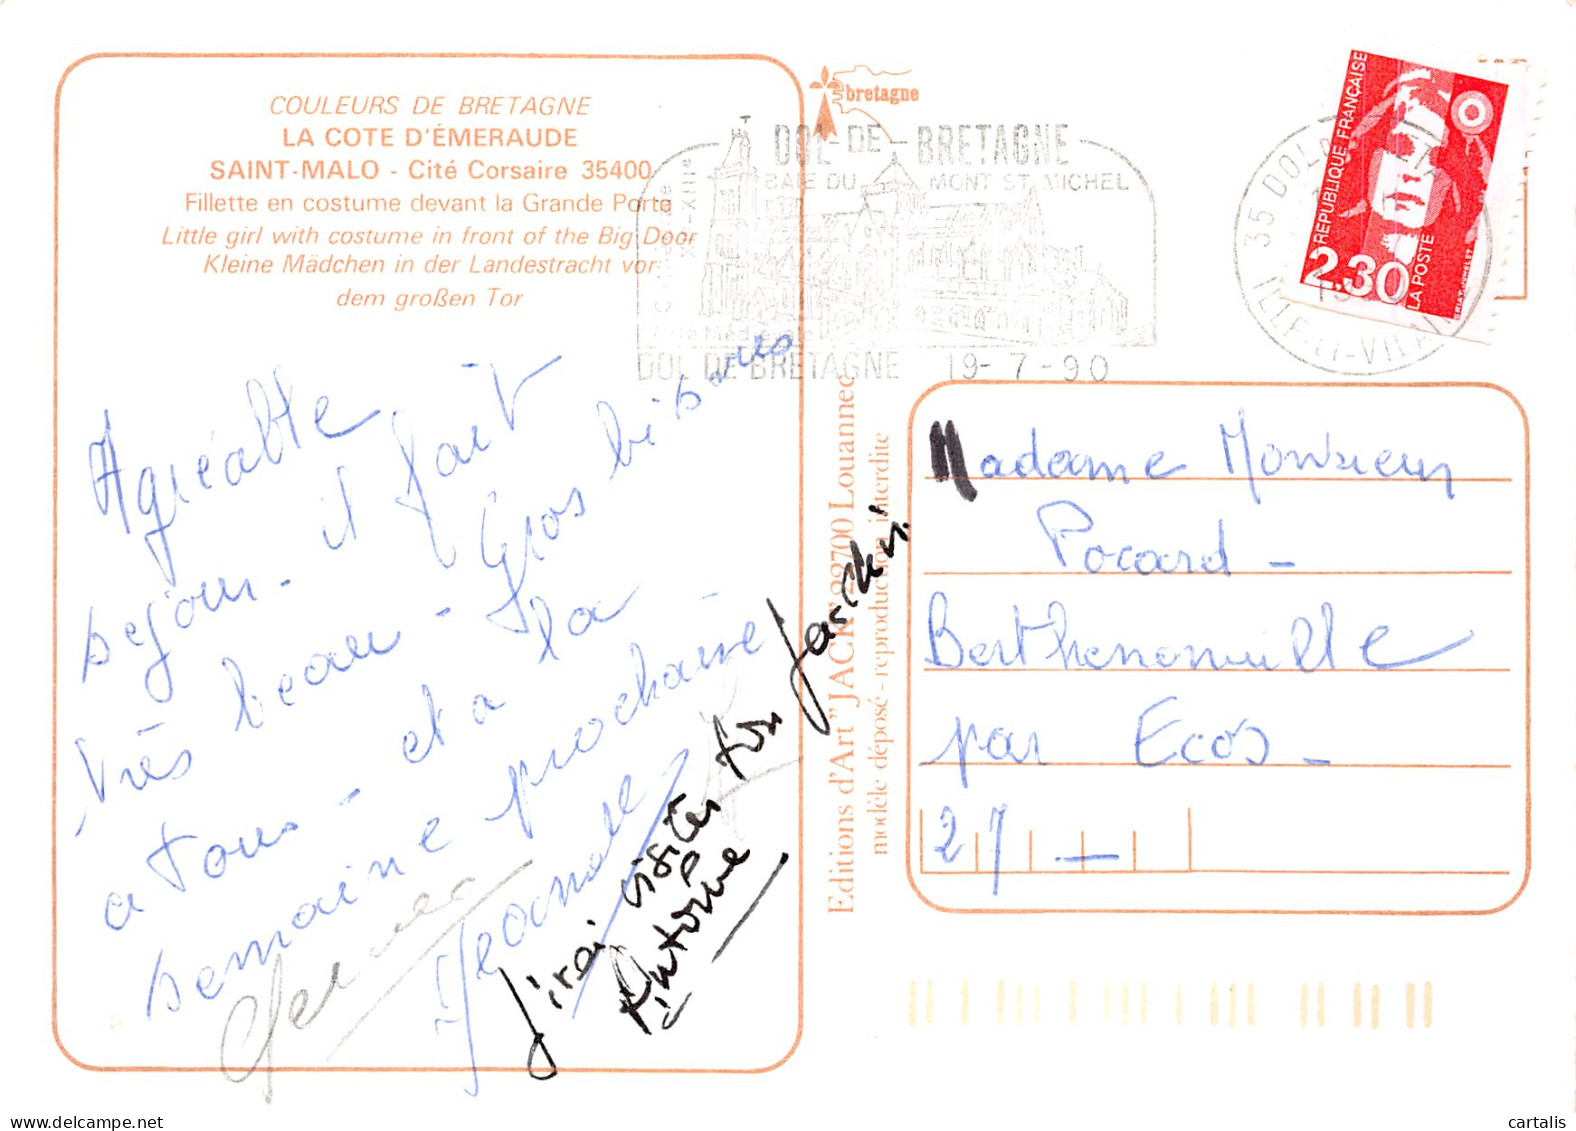 COULEURS DE BRETAGNE
LA COTE D'ÉMERAUDE
SAINT-MALO - Cité Corsaire 35400
Fillette en costume devant la Grande Porte
Little girl with costume in front of the Big Door
Kleine Mädchen in der Landestracht vor
dem großen Tor
Agréable
séjour - il fait
très beau - Gros bisous
a tous - et a la
semaine prochaine
J'irai visiter ton jardin!
Antoine
bretagne
DOL-DE-BRETAGNE
BAIE DU MONT ST MICHEL
DOL DE BRETAGNE 19-7-90
35 DOL
ILLE-ET-VILAINE
REPUBLIQUE FRANÇAISE
2,30
LA POSTE
Editions d'Art "JACK" 22700 Louannec
modèle déposé - reproduction interdite
Madame Monsieur
Pocard -
Berthenonville
par Ecos -
27 -
cartalis